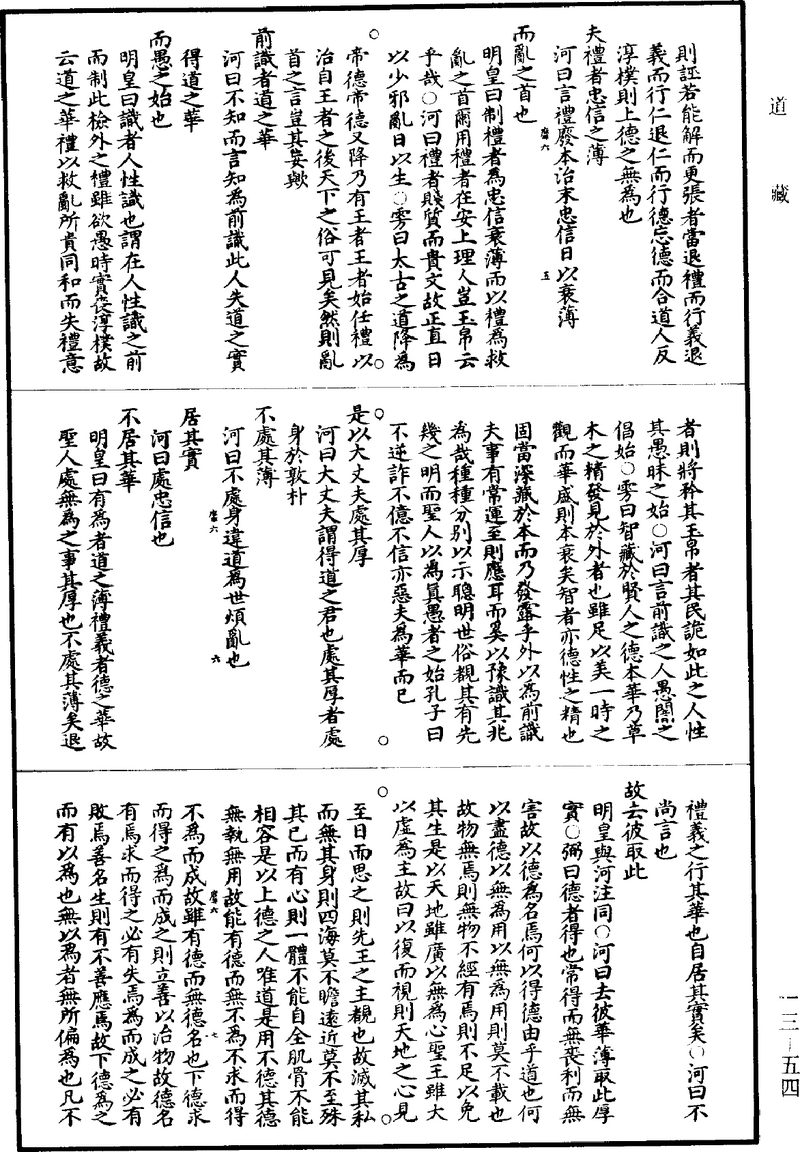 道藏
則誣若能解而更張者當退禮而行義退
義而行仁退仁而行德忘德而合道人反
淳樸則上德之無為也
夫禮者忠信之薄
河曰言禮廢本治末忠信日以衰薄
而亂之首也
明皇曰制禮者為忠信衰薄而以禮為救
亂之首爾用禮者在安上理人豈玉帛云
乎哉○河曰禮者賤質而貴文故正直日
以少邪亂日以生○雱曰太古之道降為
帝德帝德又降乃有王者王者始任禮以
治自王者之後天下之俗可見矣然則亂
首之言豈其妄歟
前識者道之華
河曰不知而言知為前識此人失道之實
得道之華
而愚之始也
明皇曰識者人性識也謂在人性識之前
而制此檢外之禮雖欲愚時實喪淳樸故
云道之華禮以救亂所貴同和而失禮意
者則將矜其玉帛者其民詭如此之人性
其愚昧之始○河曰言前識之人愚闇之
倡始○雱曰智藏於賢人之德本華乃草
木之精發見於外者也雖足以美一時之
觀而華盛則本衰矣智者亦德性之精也
固當深藏於本而乃發露乎外以為前識
夫事有常運至則應耳而奚以豫識其兆
為哉種種分別以示聰明世俗覩其有先
幾之明而聖人以為眞愚者之始孔子曰
不逆詐不億不信亦惡夫為華而已
是以大丈夫處其厚
河曰大丈夫謂得道之君也處其厚者處
身於敦朴
不處其薄
河曰不處身違道為世煩亂也
居其實
河曰處忠信也
不居其華
明皇曰有為者道之薄禮義者德之華故
聖人處無為之事其厚也不處其薄矣退
禮義之行其華也自居其實矣○河曰不
尚言也
故去彼取此
明皇與河注同○河曰去彼華薄取此厚
實○弼曰德者得也常得而無喪利而無
害故以德為名焉何以得德由乎道也何
以盡德以無為用以無為用則莫不載也
故物無焉則無物不經有焉則不足以免
其生是以天地雖廣以無為心聖王雖大
以虛為主故曰以復而視則天地之心見
至日而思之則先王之主覩也故滅其私
而無其身則四海莫不瞻遠近莫不至殊
其己而有心則一體不能自全肌骨不能
相容是以上德之人唯道是用不德其德
無執無用故能有德而無不為不求而得
不為而成故雖有德而無德名也下德求
而得之為而成之則立善以治物故德名
有焉求而得之必有失焉為而成之必有
敗焉善名生則有不善應焉故下德為之
而有以為也無以為者無所偏為也凡不
一三－五四